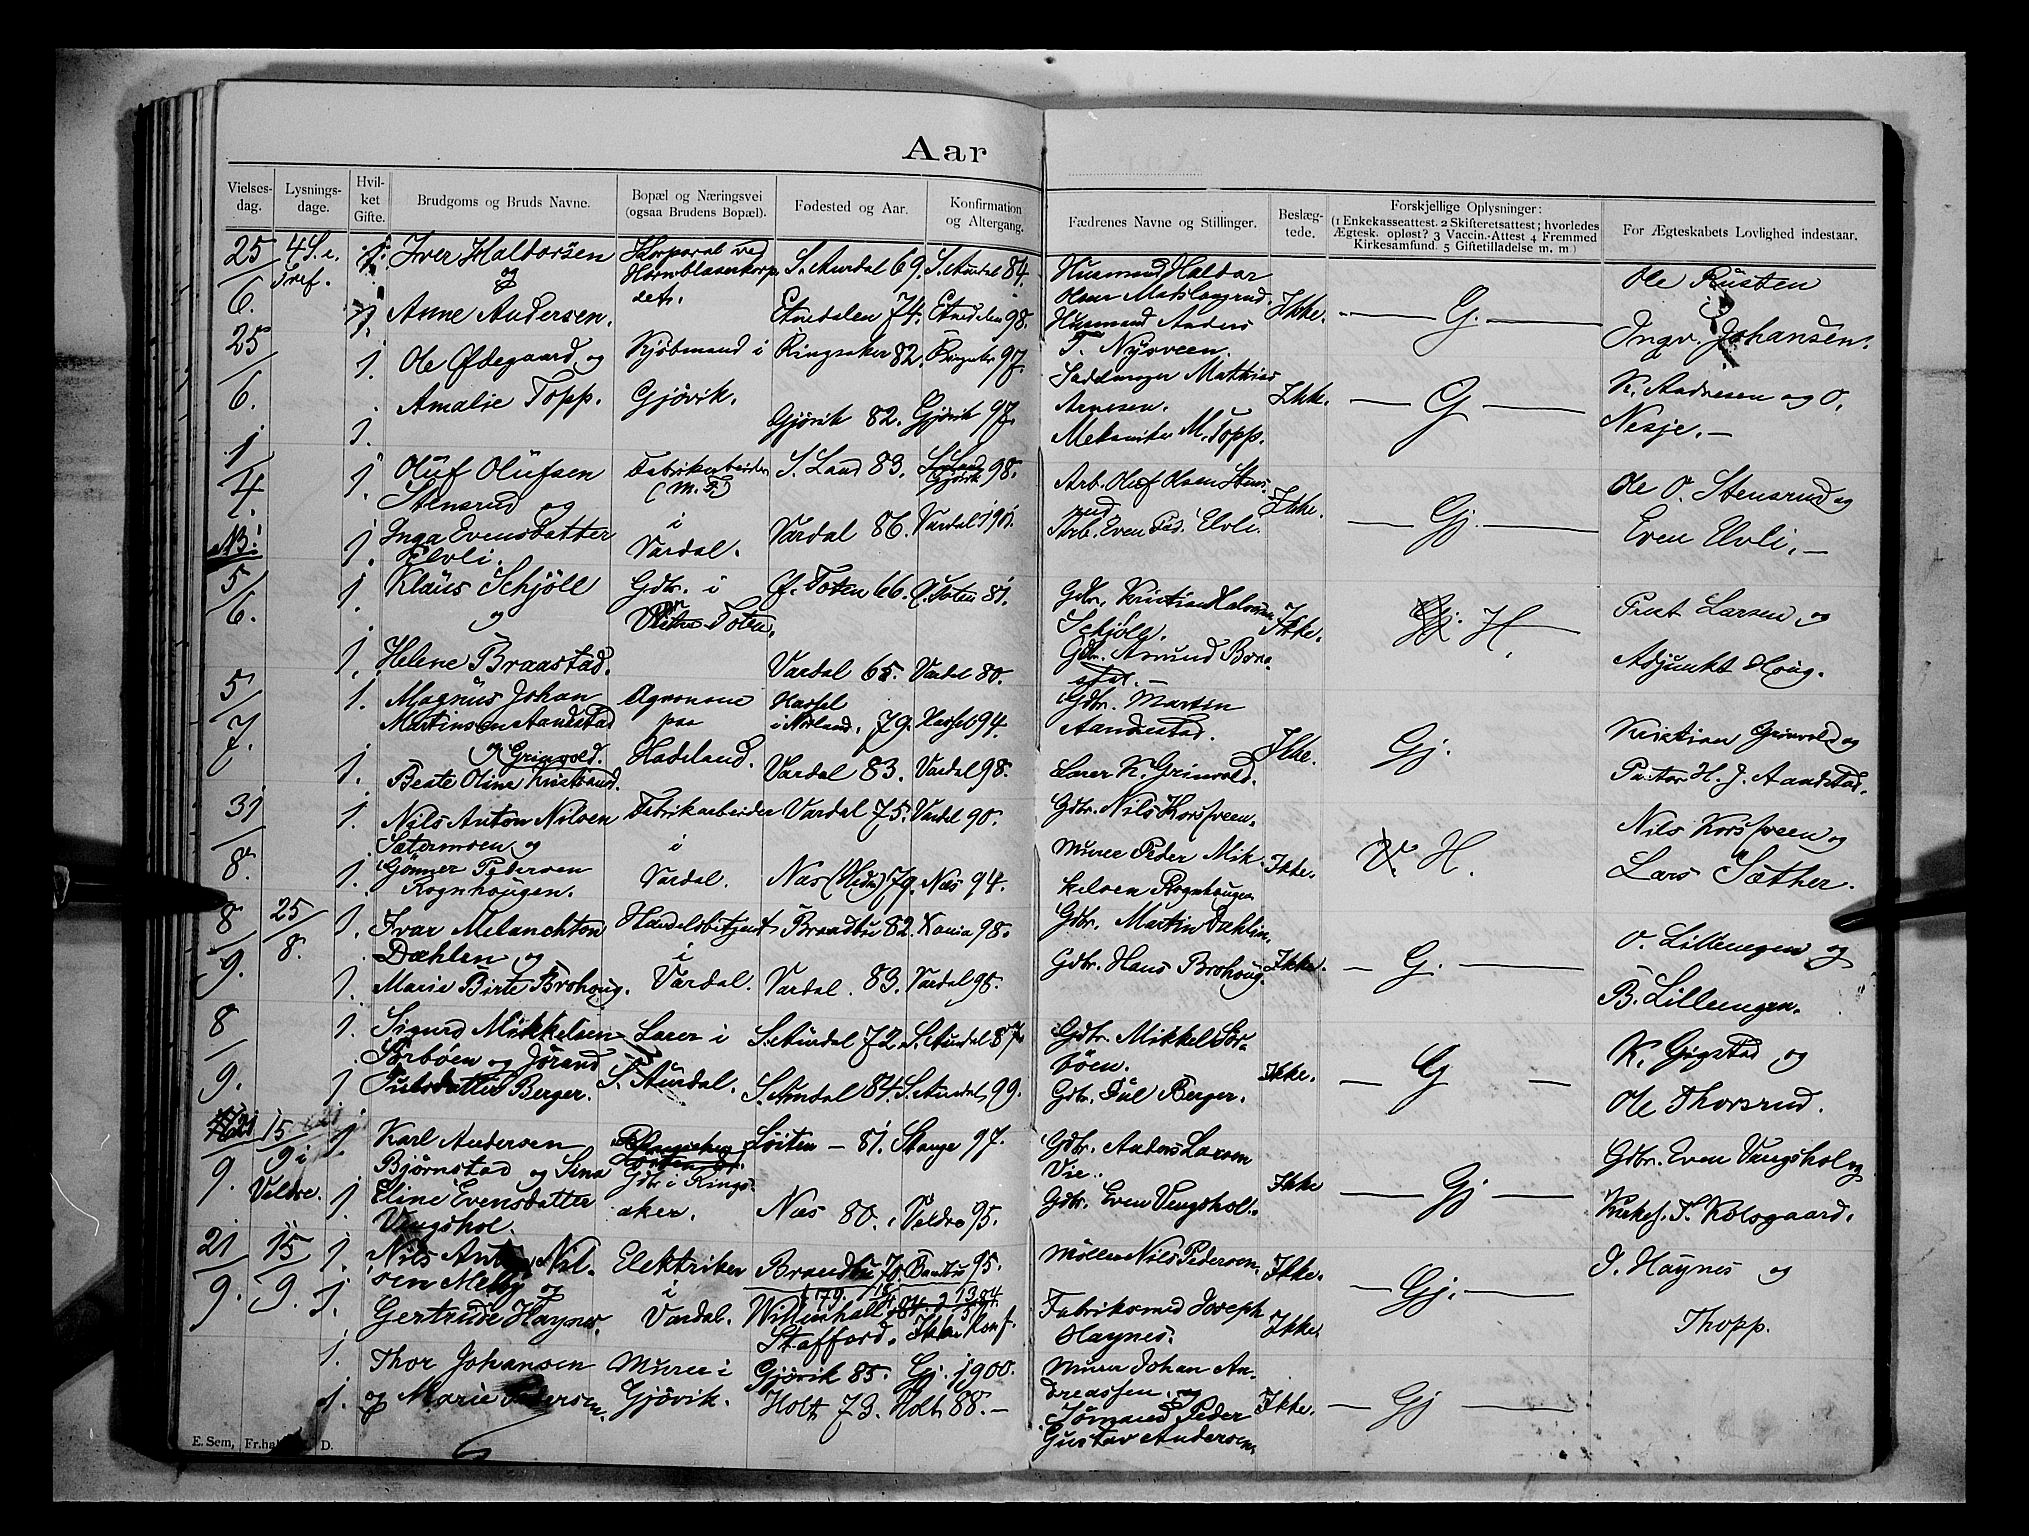 Aar
Vielses-dag. Lysnings-dage. Hvil-ket Gifte. Brudgoms og Bruds Navne. Bopæl og Næringsvei (ogsaa Brudens Bopæl). Fødested og Aar. Konfirmation og Altergang. Fædrenes Navne og Stillinger. Beslæg-tede. Forskjellige Oplysninger: (1 Enkekasseattest. 2 Skifteretsattest; hvorledes Ægtesk. opløst? 3 Vaccin.-Attest 4 Fremmed Kirkesamfund. 5 Giftetilladelse m. m) For Ægteskabets Lovlighed indestaar.
25 4 S. i. 1. Iver Haldorsen Korporal ved S. Aurdal 69. S. Aurdal 84. Husmand Haldor Ole Rusten
6. Tref. og Hornblaserkorp- Olsen i
1. Anne Andersen. Etnedalen 74. Etnedalen 98. Husmand Anders Ikke. — G. — Ingv. Johansen.
25 1. Ole Ødegaard og Kjøbmand i Ringsaker 82. 97. T. Nysveen.
6. Amalie Topp. Gjøvik. Sadelmager Mathias Ikke. — G — K. Andresen og O.
1. Gjøvik 82. Gjøvik 97. Arnesen. Nesje. —
Mekaniker M. Topp.
1 1. Oluf Olufsen Fabrikarbeider S. Land 83. S. Land 98. Arb. Oluf Olsen Stens- Ole O. Stensrud og
4. Stensrud og (M. F.) Gjøvik rud Ikke. — Gj. —
NB! 1. Inga Evensdatter i Vardal 86. Vardal 1901. Arb. Even Ped. Elvli. Even Elvli. —
Elvli. Vardal.
5 1. Klaus Schjöll Gdbr. i Ø. Toten 66. Ø. Toten 81. Gdbr. Kristian Halvorsen Prest Larsen og
6. og Vestre Toten. Schjöll. Ikke. H.
1. Helene Braastad. Vardal 65. Vardal 80. Gdbr. Amund Braa- Adjunkt Houg.
stad. —
5 1. Magnus Johan Agronom Hassel Gdbr. Martin
7. Martinsen Aandstad paa i Norland. 79. Hassel 94. Aandstad. Ikke. Gj. Kristian Grinvold og
og Grinvold. Hadeland.
1. Beate Oline Vardal 83. Vardal 98. Lærer K. Grinvold. Pastor H. J. Aandstad.
31 1. Nils Anton Nilsen Fabrikarbeider Vardal 75. Vardal 90. Gdbr. Nils Korsveen. Nils Korsveen og
8. Sætermoen og i Murer Peder Mik- Ikke. V. H.
1. Pedersen Vardal. Næs (Hedm) 79. Næs 94. kelsen Rognhaugen. Lars Sæther.
Rognhaugen.
8 25 1. Ivar Melanchton Handelsbetjent Brandbu 82. Xania 98. Gdbr. Martin Dæhlin. O. Lillemoen og
9. 8. Dæhlen og i — G. —
1. Marie Birte Brohoug. Vardal. Vardal. 83. Vardal 98. Gdbr. Hans Brohoug. Ikke. B. Lillemoen.
8 1. Sigurd Mikkelsen Lærer i S. Aurdal 72. S. Aurdal 87. Gdbr. Mikkel Sør- K. Gigstad og
9. Sørbøen og Jørand bøen. Ikke. — G —
1. Berger. S. Aurdal. S. Aurdal 84. S. Aurdal 99. Gdbr. Berger. Ole Thorsrud.
21 15 1. Karl Andersen Løiten — 81. Stange 97. Gdbr. Anders Larsen Gdbr. Even Vængshol og
9. 9 i Bjørnstad og Sina Gdbr. i Rings- Vie. Ikke — Gj —
Veldre. 1. Eline Evensdatter aker. Næs 80. Veldre 95. Gdbr. Even Vængshol. Kirkes. T. Kolsgaard.
Vængshol.
21 15 1. Nils Anton Nil- Elektriker Brandbu 79. Brandbu 95. Møller Nils Pedersen. Ikke. J. Haynes og
9. 9. sen Melby og i — Gj. —
1. Gertrude Haynes. Vardal. Willenhall Fabriksmed Joseph Ikke. Thopp.
Stafford. Ikke Konf. Haynes.
1. Thor Johansen Murer i Gjøvik 85. Gj. 1900. Murer Johan An-
1. og Marie Gjøvik. Holt 73. Holt 88. — dreassen og Ikke. — Gj —
Sømand Peder
Gustav Andersen.
E. Sem, Fr.hal D.